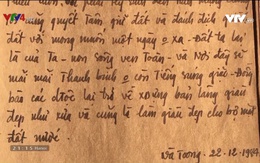 VTV4 VTV
quyết tâm giữ đất và đánh địch
đất với mong muốn một ngày Đất lại
là của Ta - non sông vẹn toàn - và Nơi đây sẽ
mãi mãi Thanh bình có tiếng súng
bào các được lại trở về xây dựng bản làng
đẹp như xưa và cùng làm giàu đẹp cho bộ mặt
đất nước.
22-12-1984